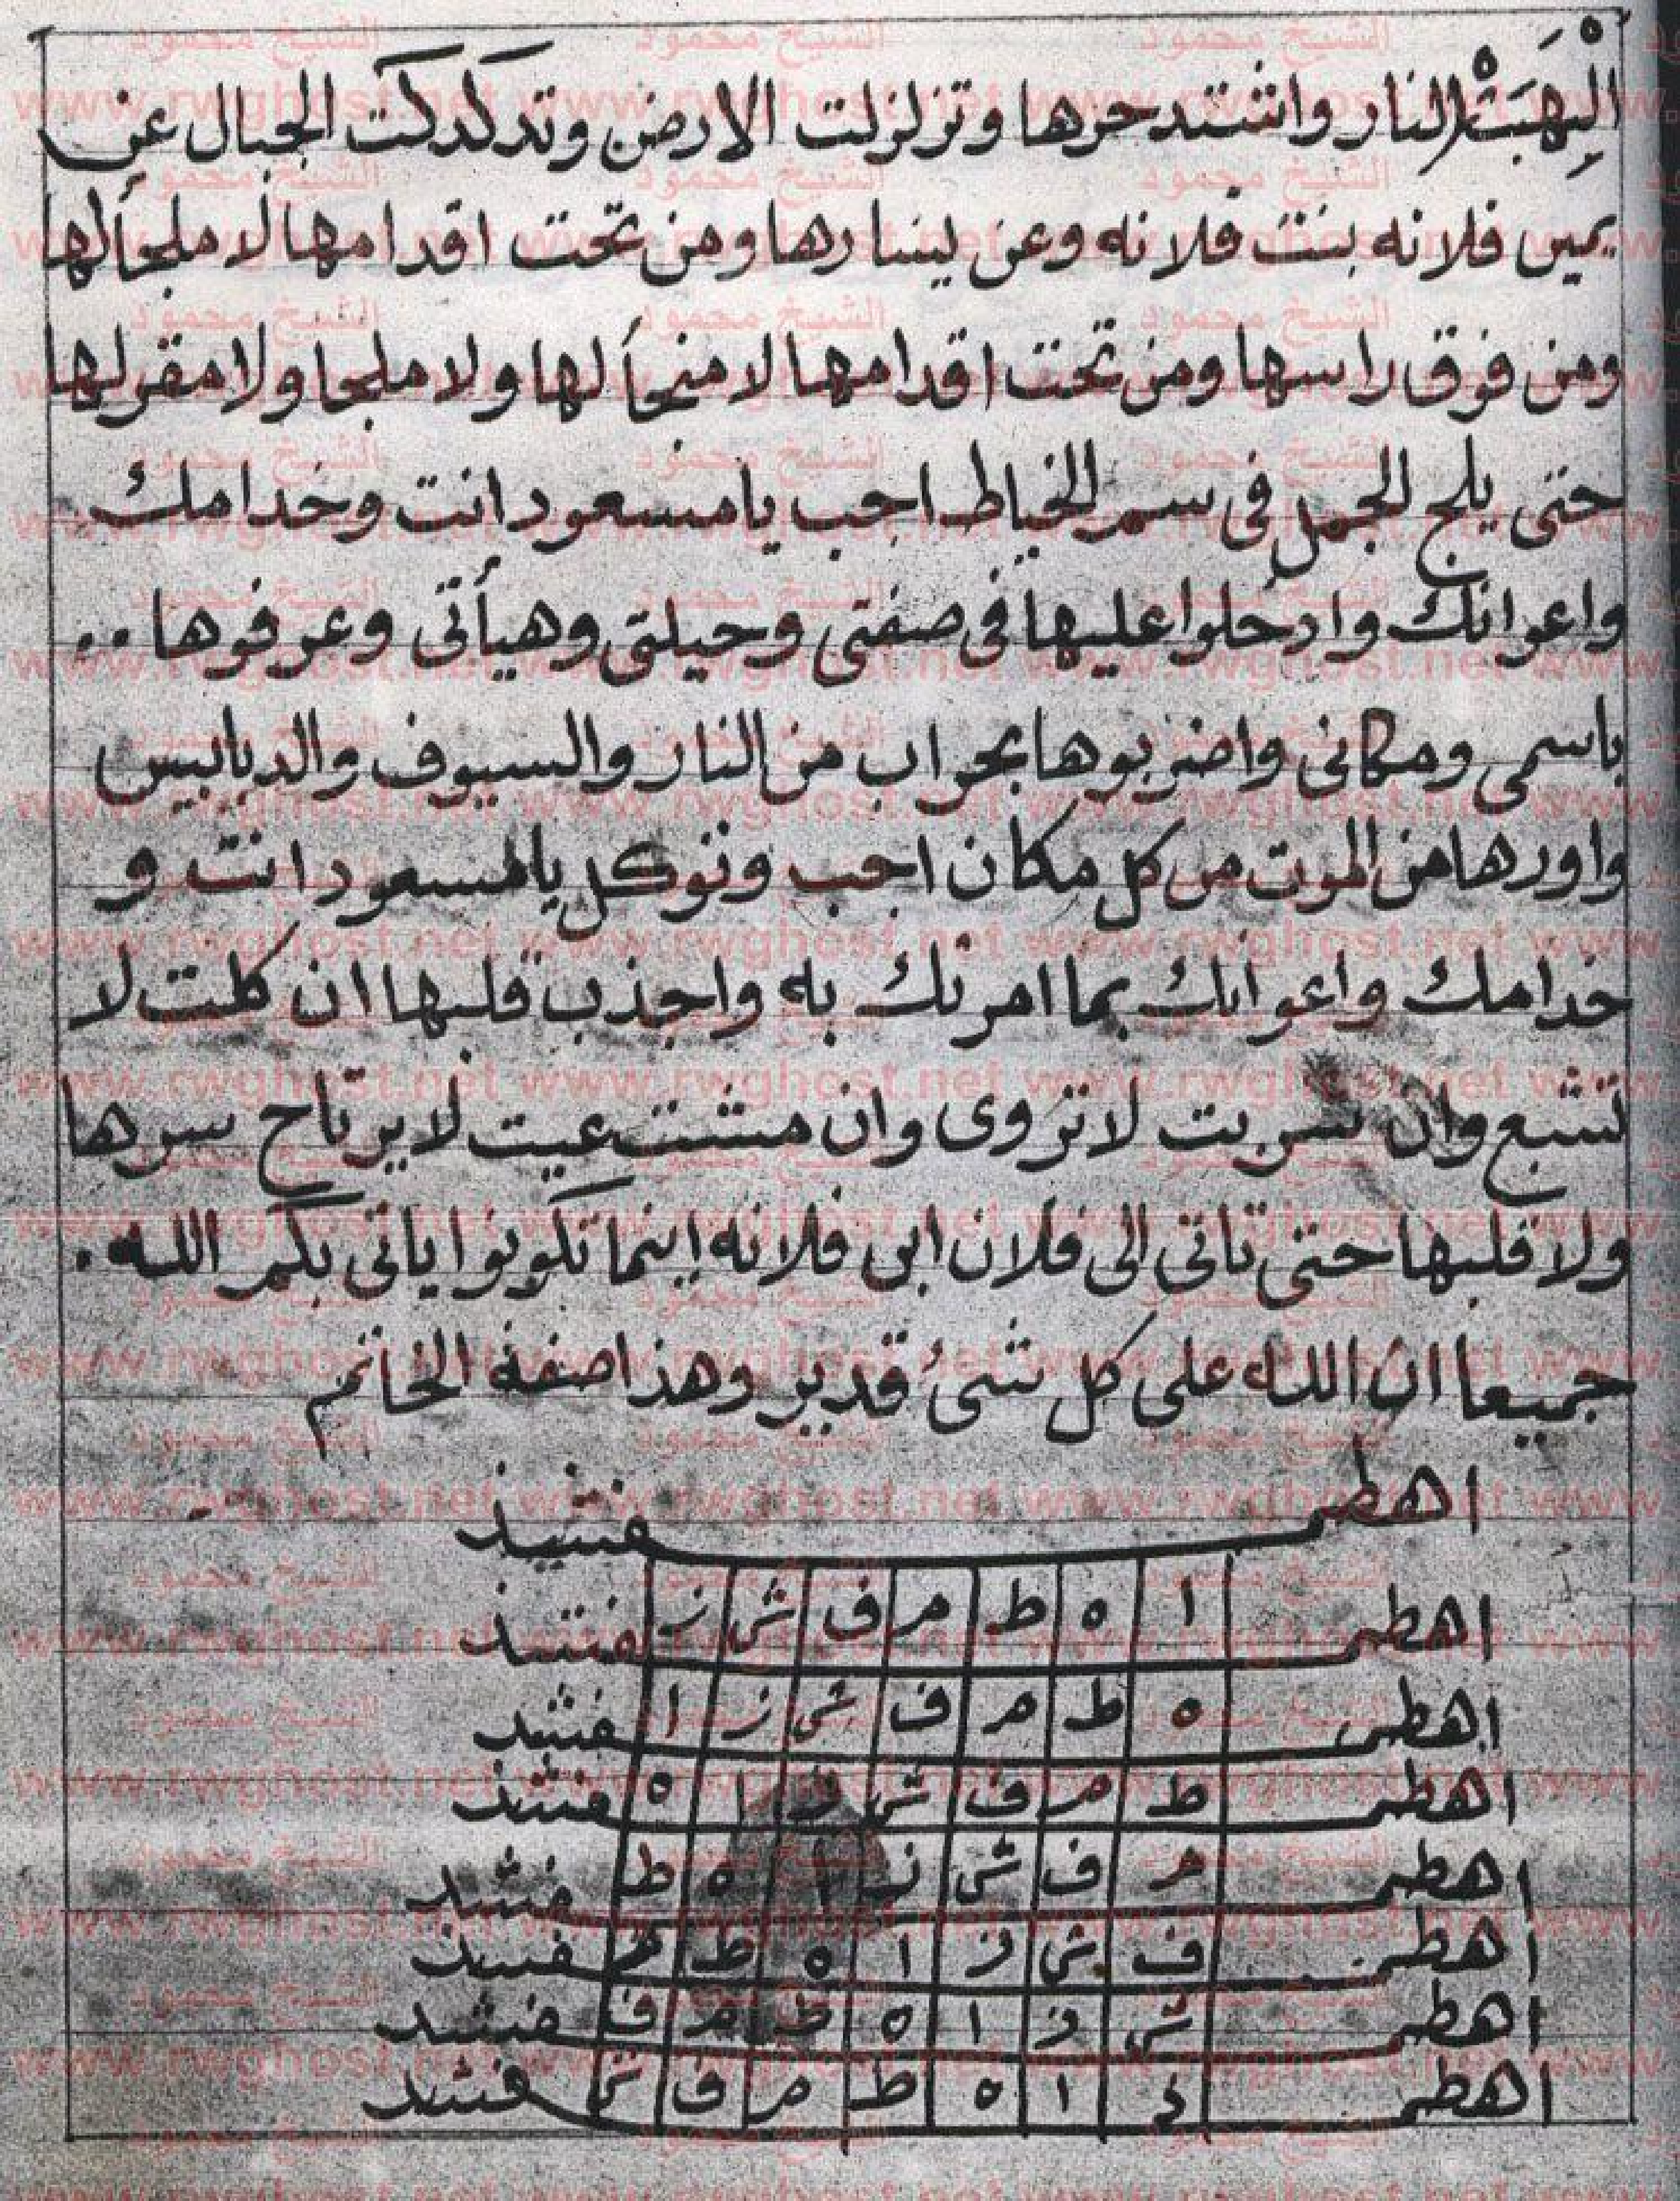 الْهَبَتْ النار واشتد حرها وتزلزلت الارض وتدكدكت الجبال عن
يمين فلانه بنت فلانه وعن يسارها ومن تحت اقدامها لا ملجألها
ومن فوق راسها ومن تحت اقدامها لا منجألها ولا ملجا ولا مفرلها
حتى يلج الجمل فى سم الخياط اجب يا مسعود انت وخدامك
واعوانك وادخلوا عليها فى صفتى وحيلتى وهيأتى وعرفوها ..
باسمى ومكانى واضربوها بحراب من النار والسيوف والدبابيس
واورها من الموت من كل مكان اجب وتوكل يا مسعود انت و
خدامك واعوانك بما امرتك به واجذب قلبها ان كلت لا
تشبع وان شربت لا تروى وان مشت عيت لا يرتاح سرها
ولا قلبها حتى تاتى الى فلان ابن فلانه اينما تكونوا ياتى بكم الله .
جميعا ان الله على كل شئ قدير وهذا صفة الخاتم
اهطم فشذ
اهطم ا ه ط م ف ش ذ فشذ
اهطم ه ط م ف ش ذ ا فشذ
اهطم ط م ف ش ذ ا ه فشذ
اهطم م ف ش ذ ا ه ط فشذ
اهطم ف ش ذ ا ه ط م فشذ
اهطم ش ذ ا ه ط م ف فشذ
اهطم ذ ا ه ط م ف ش فشذ
الشيخ محمود
www.rwghost.net